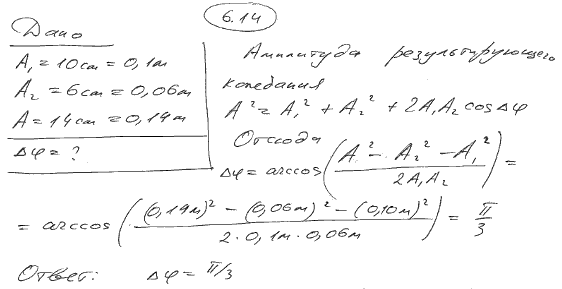 6.14
Дано
A₁ = 10см = 0,1м
A₂ = 6см = 0,06м
A = 14см = 0,14м
Δφ = ?
Амплитуда результирующего
колебания
A² = A₁² + A₂² + 2A₁A₂ cos Δφ
Отсюда
Δφ = arccos ( (A² - A₂² - A₁²) / (2A₁A₂) ) =
= arccos ( ((0,14м)² - (0,06м)² - (0,10м)²) / (2·0,1м·0,06м) ) = π/3
Ответ: Δφ = π/3